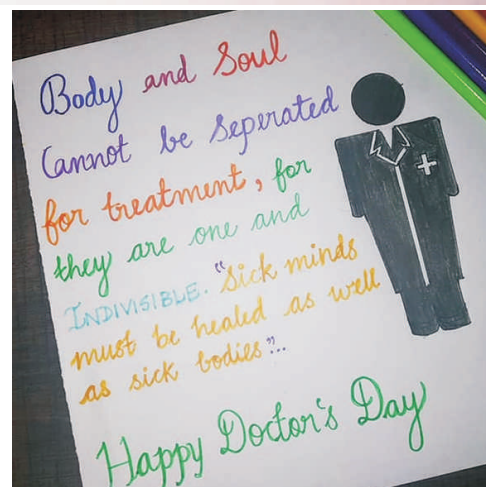 Body and Soul
Cannot be Seperated
for treatment, for
they are one and
INDIVISIBLE. "Sick minds
must be healed as well
as sick bodies"..
Happy Doctor's Day